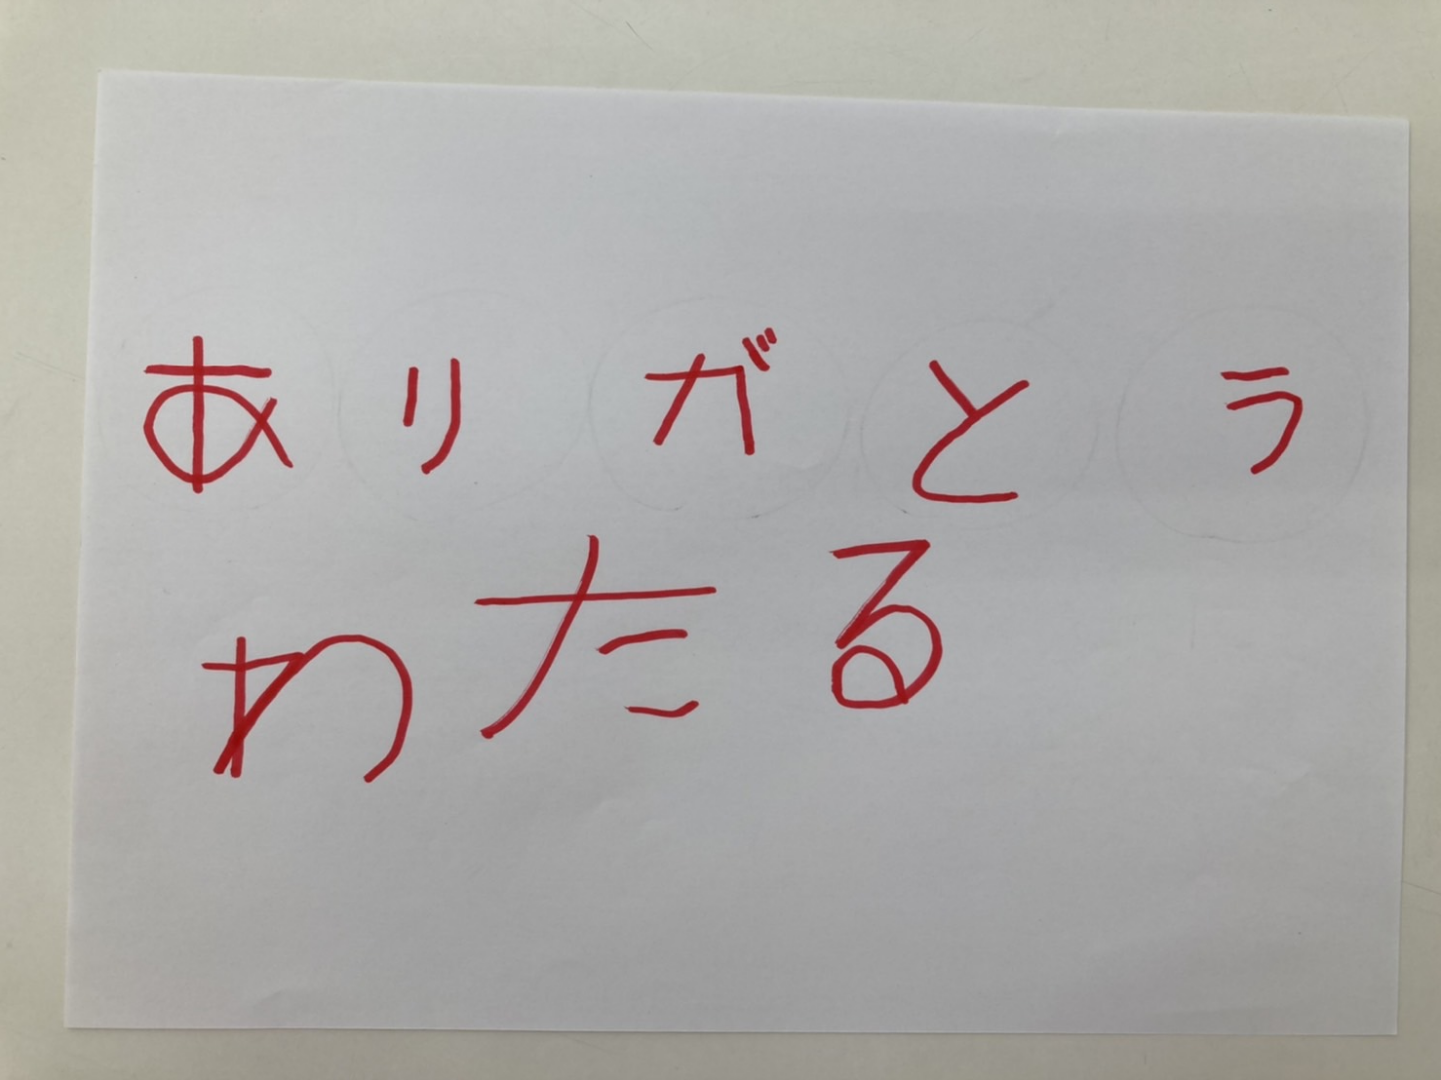 ありがとう
わたる